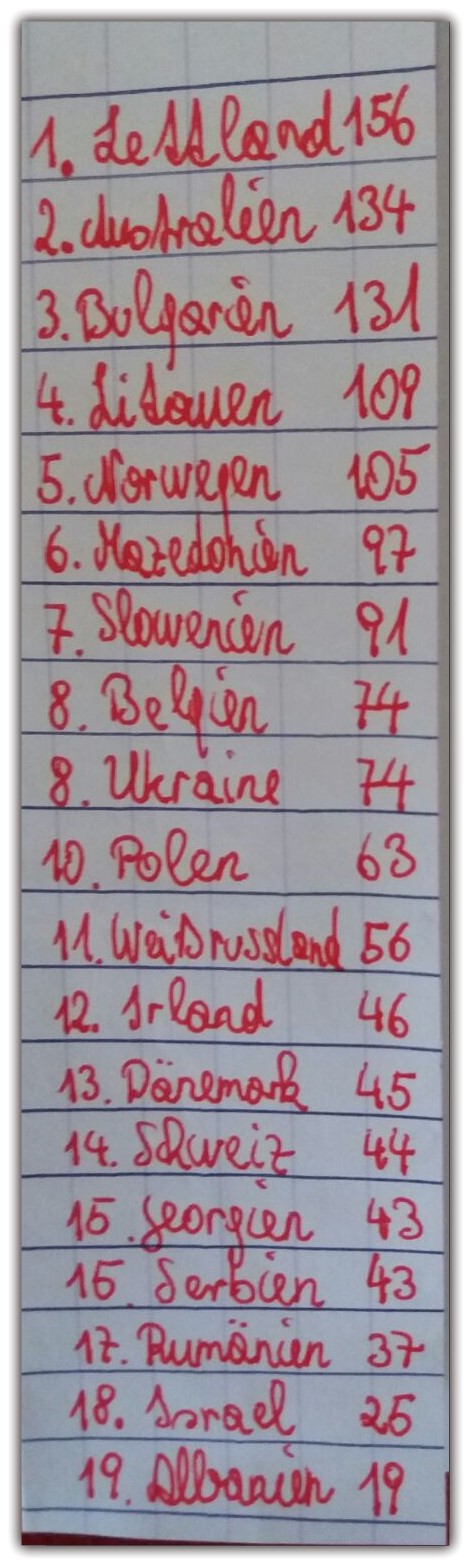 1. Lettland 156
2. Australien 134
3. Bulgarien 131
4. Litauen 109
5. Norwegen 105
6. Mazedonien 97
7. Slowenien 91
8. Belgien 74
8. Ukraine 74
10. Polen 63
11. Weißrussland 56
12. Irland 46
13. Dänemark 45
14. Schweiz 44
15. Georgien 43
15. Serbien 43
17. Rumänien 37
18. Israel 25
19. Albanien 19